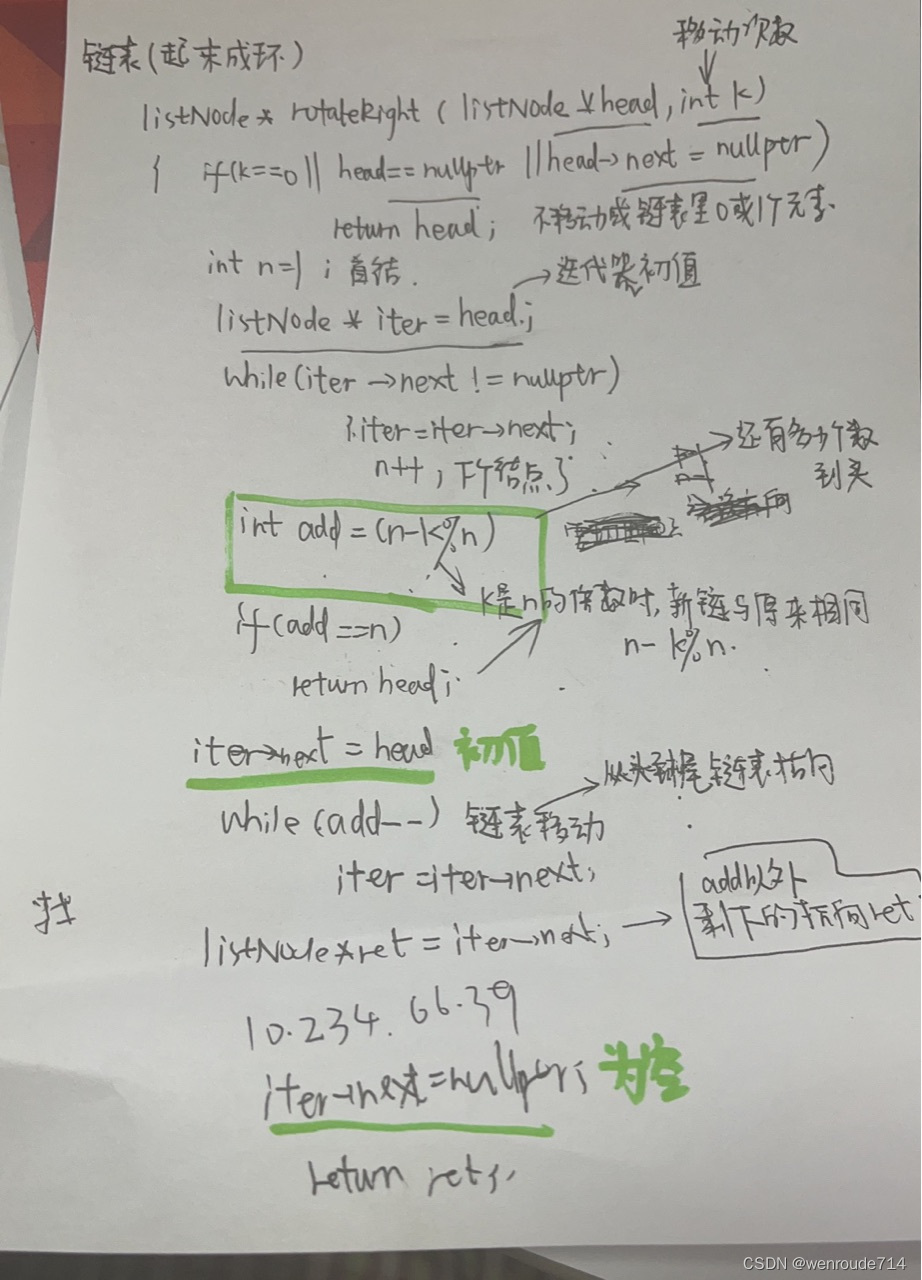 链表(起来成环)
移动次数
listNode* rotateRight (listNode *head, int k)
{ if(k==0 || head==nullptr || head->next = nullptr)
return head; 不移动或链表里0或1个元素.
int n=1; 首结.
迭代器初值
listNode * iter = head;
while(iter->next != nullptr)
{iter=iter->next;
还有多少个数
到头
n++, 下个结点了
int add = (n-k%n)
k是n的倍数时,新链与原来相同
n-k%n.
if(add==n)
return head;
iter->next = head 初值
从头到尾与链表指向
while(add--) 链表移动
iter=iter->next;
add以外
剩下的指向ret
找
listNode*ret = iter->next;
10.234.66.39
iter->next=nullptr; 为空
return ret;
CSDN @wenroude714